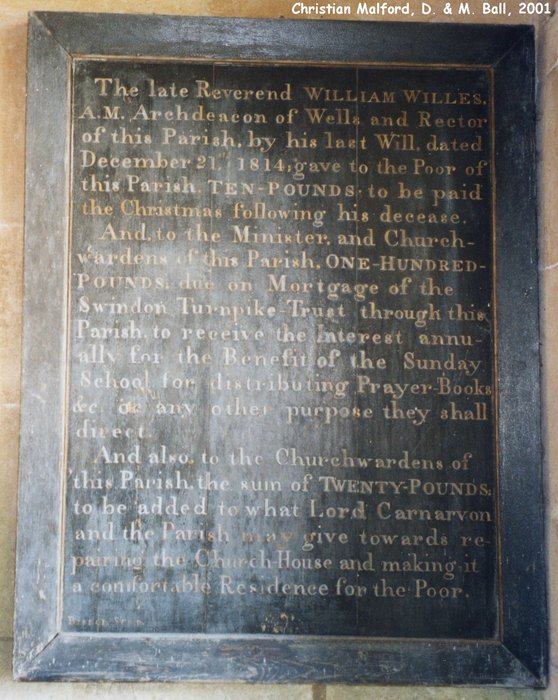 Christian Malford, D. & M. Ball, 2001
The late Reverend WILLIAM WILLES,
A.M. Archdeacon of Wells and Rector
of this Parish, by his last Will, dated
December 21st 1814, gave to the Poor of
this Parish, TEN-POUNDS, to be paid
the Christmas following his decease.
And, to the Minister, and Church-
wardens of this Parish, ONE-HUNDRED-
POUNDS, due on Mortgage of the
Swindon Turnpike-Trust through this
Parish, to receive the Interest annu-
ally for the Benefit of the Sunday
School, for distributing Prayer-Books
&c. or any other purpose they shall
direct.
And also, to the Churchwardens of
this Parish, the sum of TWENTY-POUNDS,
to be added to what Lord Carnarvon
and the Parish may give towards re-
pairing the Church-House and making it
a comfortable Residence for the Poor.